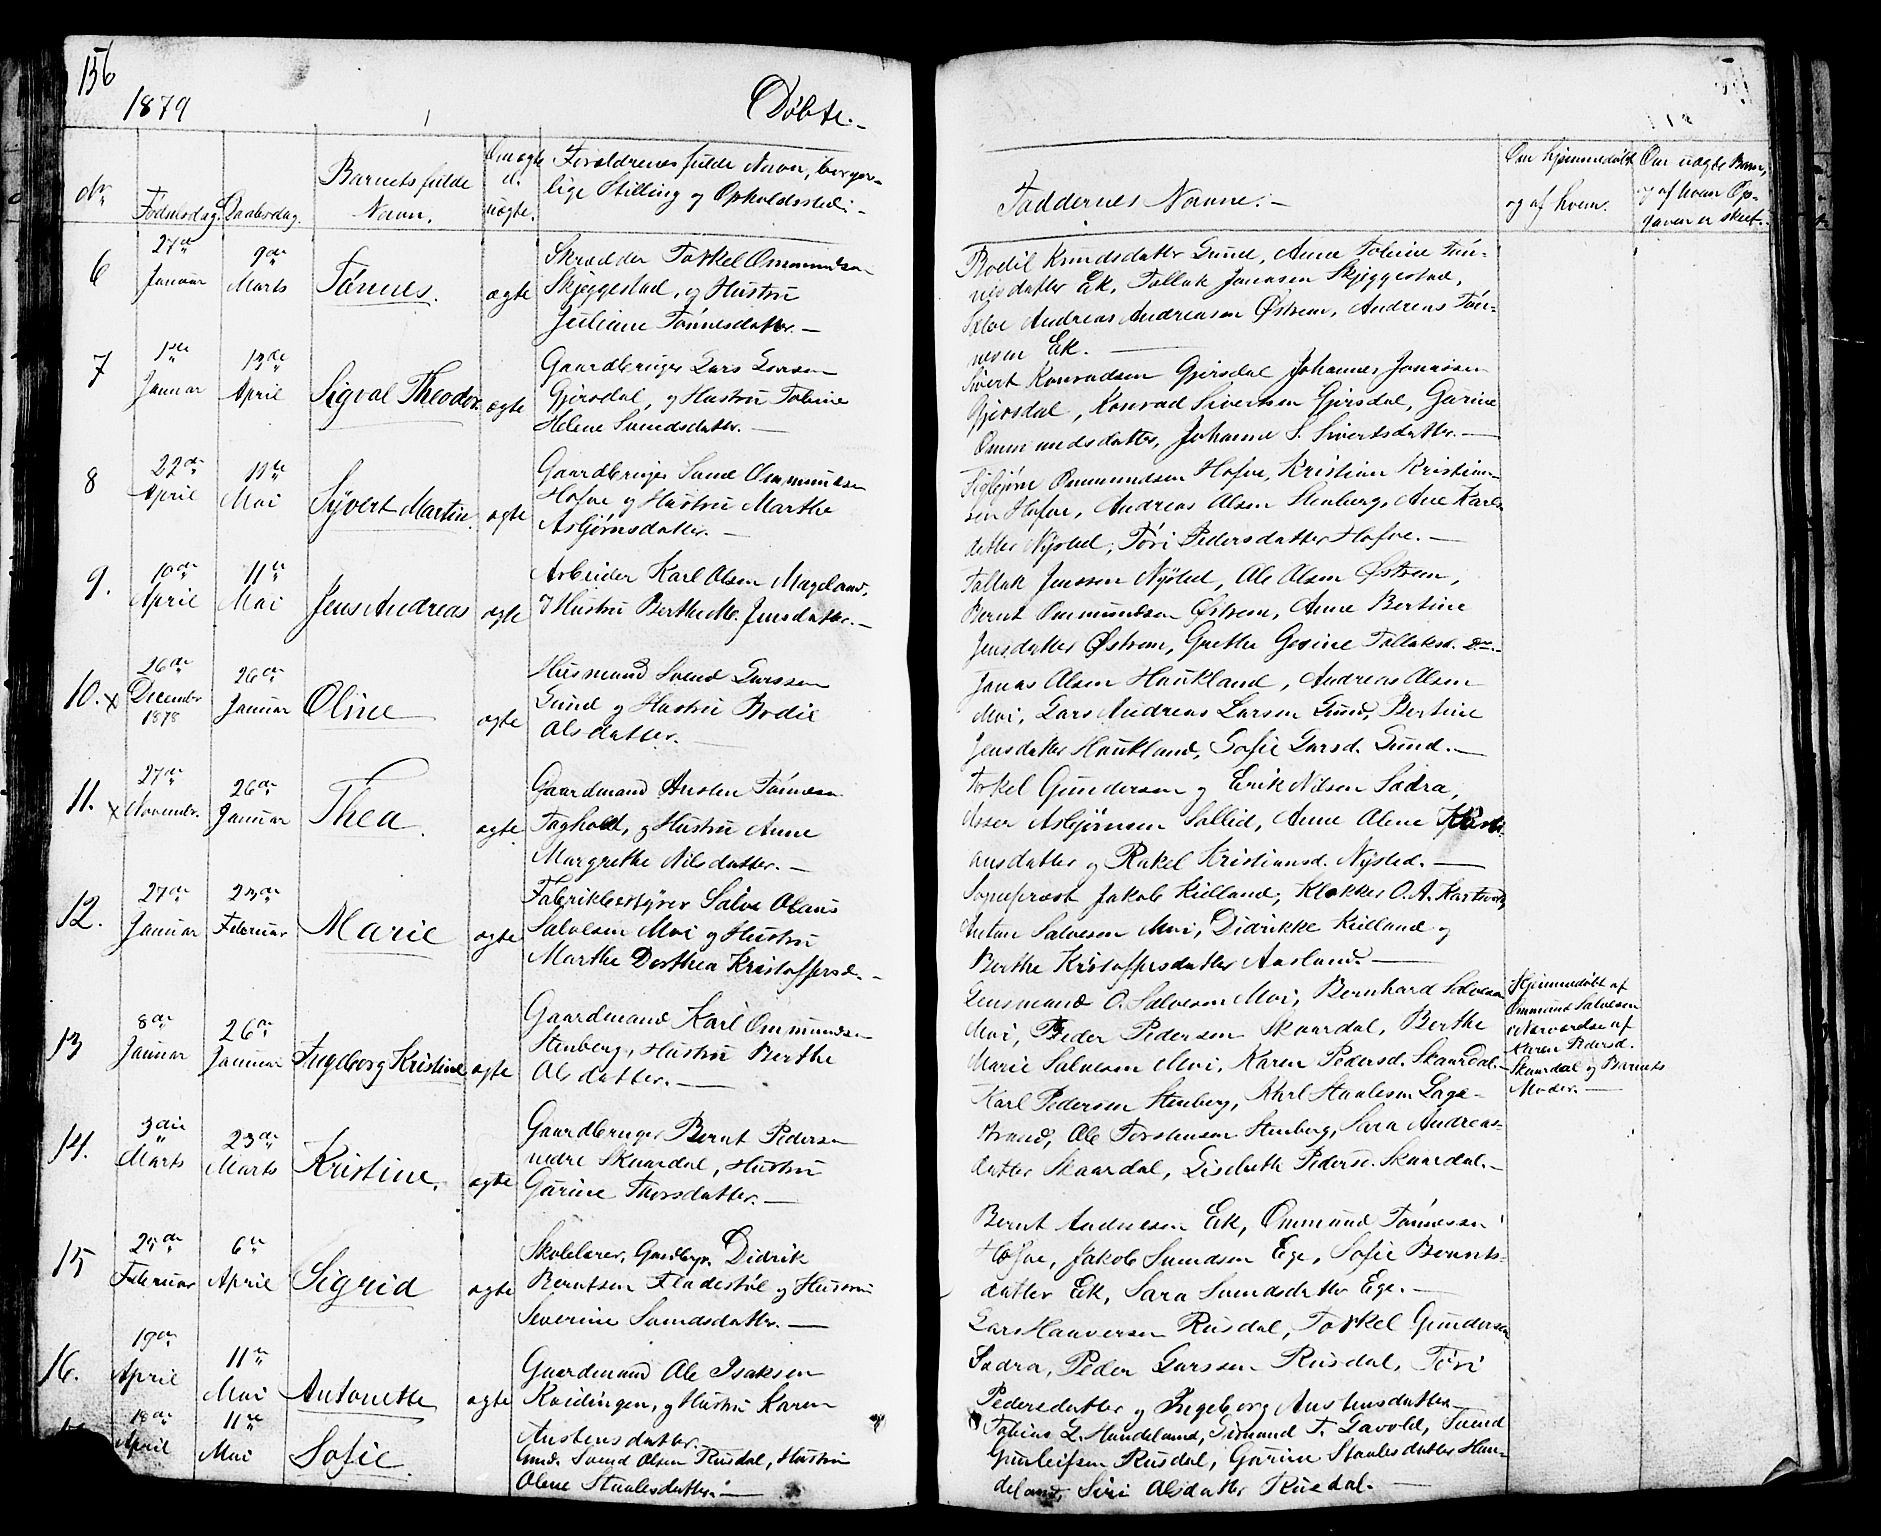 156
1879
Døbte.
No
Fødselsdag.
Daabsdag.
Barnets fulde
Navn.
Om ægte
el.
uægte.
Forældrenes fulde Navn, borger-
lige Stilling og Opholdssted.
Faddernes Navne.
Om hjemmedøbt
og af hvem.
Om uægte Barn,
og af hvem Op-
gaven er skeet.
6
27de
Januar
9de
Marts
Tønnes.
ægte
Skrædder Torkel Ommundsen
Skjeggestad, og Hustru
Juliane Tønnesdatter.
Bodil Knudsdatter Sund, Anne Tobine Tøn-
nesdatter Ek, Tollak Jonasen Skjeggestad,
Andreas Andreasen Østrem, Andreas Tøn-
nesen Ek.
7
1ste
Januar
13de
April
Sigval Theodor.
ægte
Gaardbruger Lars Larsen
Gjersdal, og Hustru Tobine
Helene Svendsdatter.
Sivert Konradsen Gjersdal Johannes Jonassen
Gjersdal, Konrad Sivertsen Gjersdal, Gurine
Ommundsdatter, Johanne S. Sivertsdatter.
8
22de
April
11te
Mai
Syvert Martin.
ægte
Gaardbruger Svend Ommundsen
Hofve og Hustru Marthe
Asbjørnsdatter.
Ommundsen Hofve, Kristian Kristian-
sen Hofve, Andreas Olsen Stenberg, Ane Karls-
datter Nysted, Tøri Pedersdatter Hofve.
9.
10de
April
11te
Mai
Jens Andreas
ægte
Arbeider Karl Olsen Mageland,
Hustru Berthe M. Jensdatter.
Tollak Jenssen Nysted, Ole Olsen Østrem,
Bernt Ommundsen Østrem, Anne Bertine
Jensdatter Østrem, Grethe Gesine Tollaksd.
10. x
26de
December
1878
26de
Januar
Oline
ægte
Husmand Svend Larssen
Sund og Hustru Bodil
Olsdatter.
Jonas Olsen Haukland, Andreas Olsen
Moi, Lars Andreas Larsen Sund, Bertine
Jensdatter Haukland, Sofie Larsd. Sund.
11. x
27de
November.
26de
Januar
Thea.
ægte
Gaardmand Austen Tønnesen
Taghold, og Hustru Anne
Margrethe Nilsdatter.
Torkel Gundersen og Erik Nilsen Sadra,
Asser Asbjørnsen Sollid, Anne Olene Kristi-
ansdatter og Rakel Kristiansd. Nysted.
12.
27de
Januar
23de
Februar
Marie
ægte
Fabrikbestyrer Salve Olaus
Salvesen Moi og Hustru
Marthe Dorthea Kristoffersd.
Sognepræst Jakob Kielland, Klokker O. A.
Anton Salvesen Moi, Didrikke Kielland og
Berthe Kristoffersdatter Aasland.
13
8de
Januar
26de
Januar
Ingeborg Kristine
ægte
Gaardmand Karl Ommundsen
Stenberg, Hustru Berthe
Olsdatter.
Lensmand O. Salvesen Moi, Bernhard Salvesen
Moi, Peder Pedersen Skaardal, Berthe
Marie Salvesen Moi, Karen Pedersd. Skaardal.
Hjemmedøbt af
Ommund Salvesen
i Nærværelse af
Karen Pedersd.
Skaardal og Barnets
Moder.
14.
3die
Marts
23de
Marts
Kristine.
ægte
Gaardbruger Bernt Pedersen
nedre Skaardal, Hustru
Gurine Thorsdatter.
Karl Pedersen Stenberg, Karl Staalesen Lage-
strand, Ole Torstensen Stenberg, Sara Andreas-
datter Skaardal, Lisebeth Pedersd. Skaardal.
15
25de
Februar
6te
April
Sigrid
ægte
Skolelærer, Gaardbgr. Didrik
Berntsen Fladestøl og Hustru
Severine Svendsdatter.
Bernt Andresen Ek, Ommund Tønnesen
Hofve, Jakob Svendsen Ege, Sofie Bernts-
datter Ek, Sara Svendsdatter Ege.
16.
19de
April
11te
Mai
Antonette
ægte
Gaardmand Ole Isaksen
Kvidingen, og Hustru Karen
Austensdatter.
Lars Haaversen Rusdal, Torkel Gundersen
Sadra, Peder Larssen Rusdal, Tøri
Pedersdatter og Ingeborg Austensdatter
18de
April
11te
Mai
Sofie.
Gmd. Svend Olsen Rusdal, Hustru
Olene Staalesdatter.
Tobias L. Handeland, Sigmund T. Lavold, Svend
Gunleifsen Rusdal, Gurine Staalesdatter Han-
deland, Siri Olsdatter Rusdal.